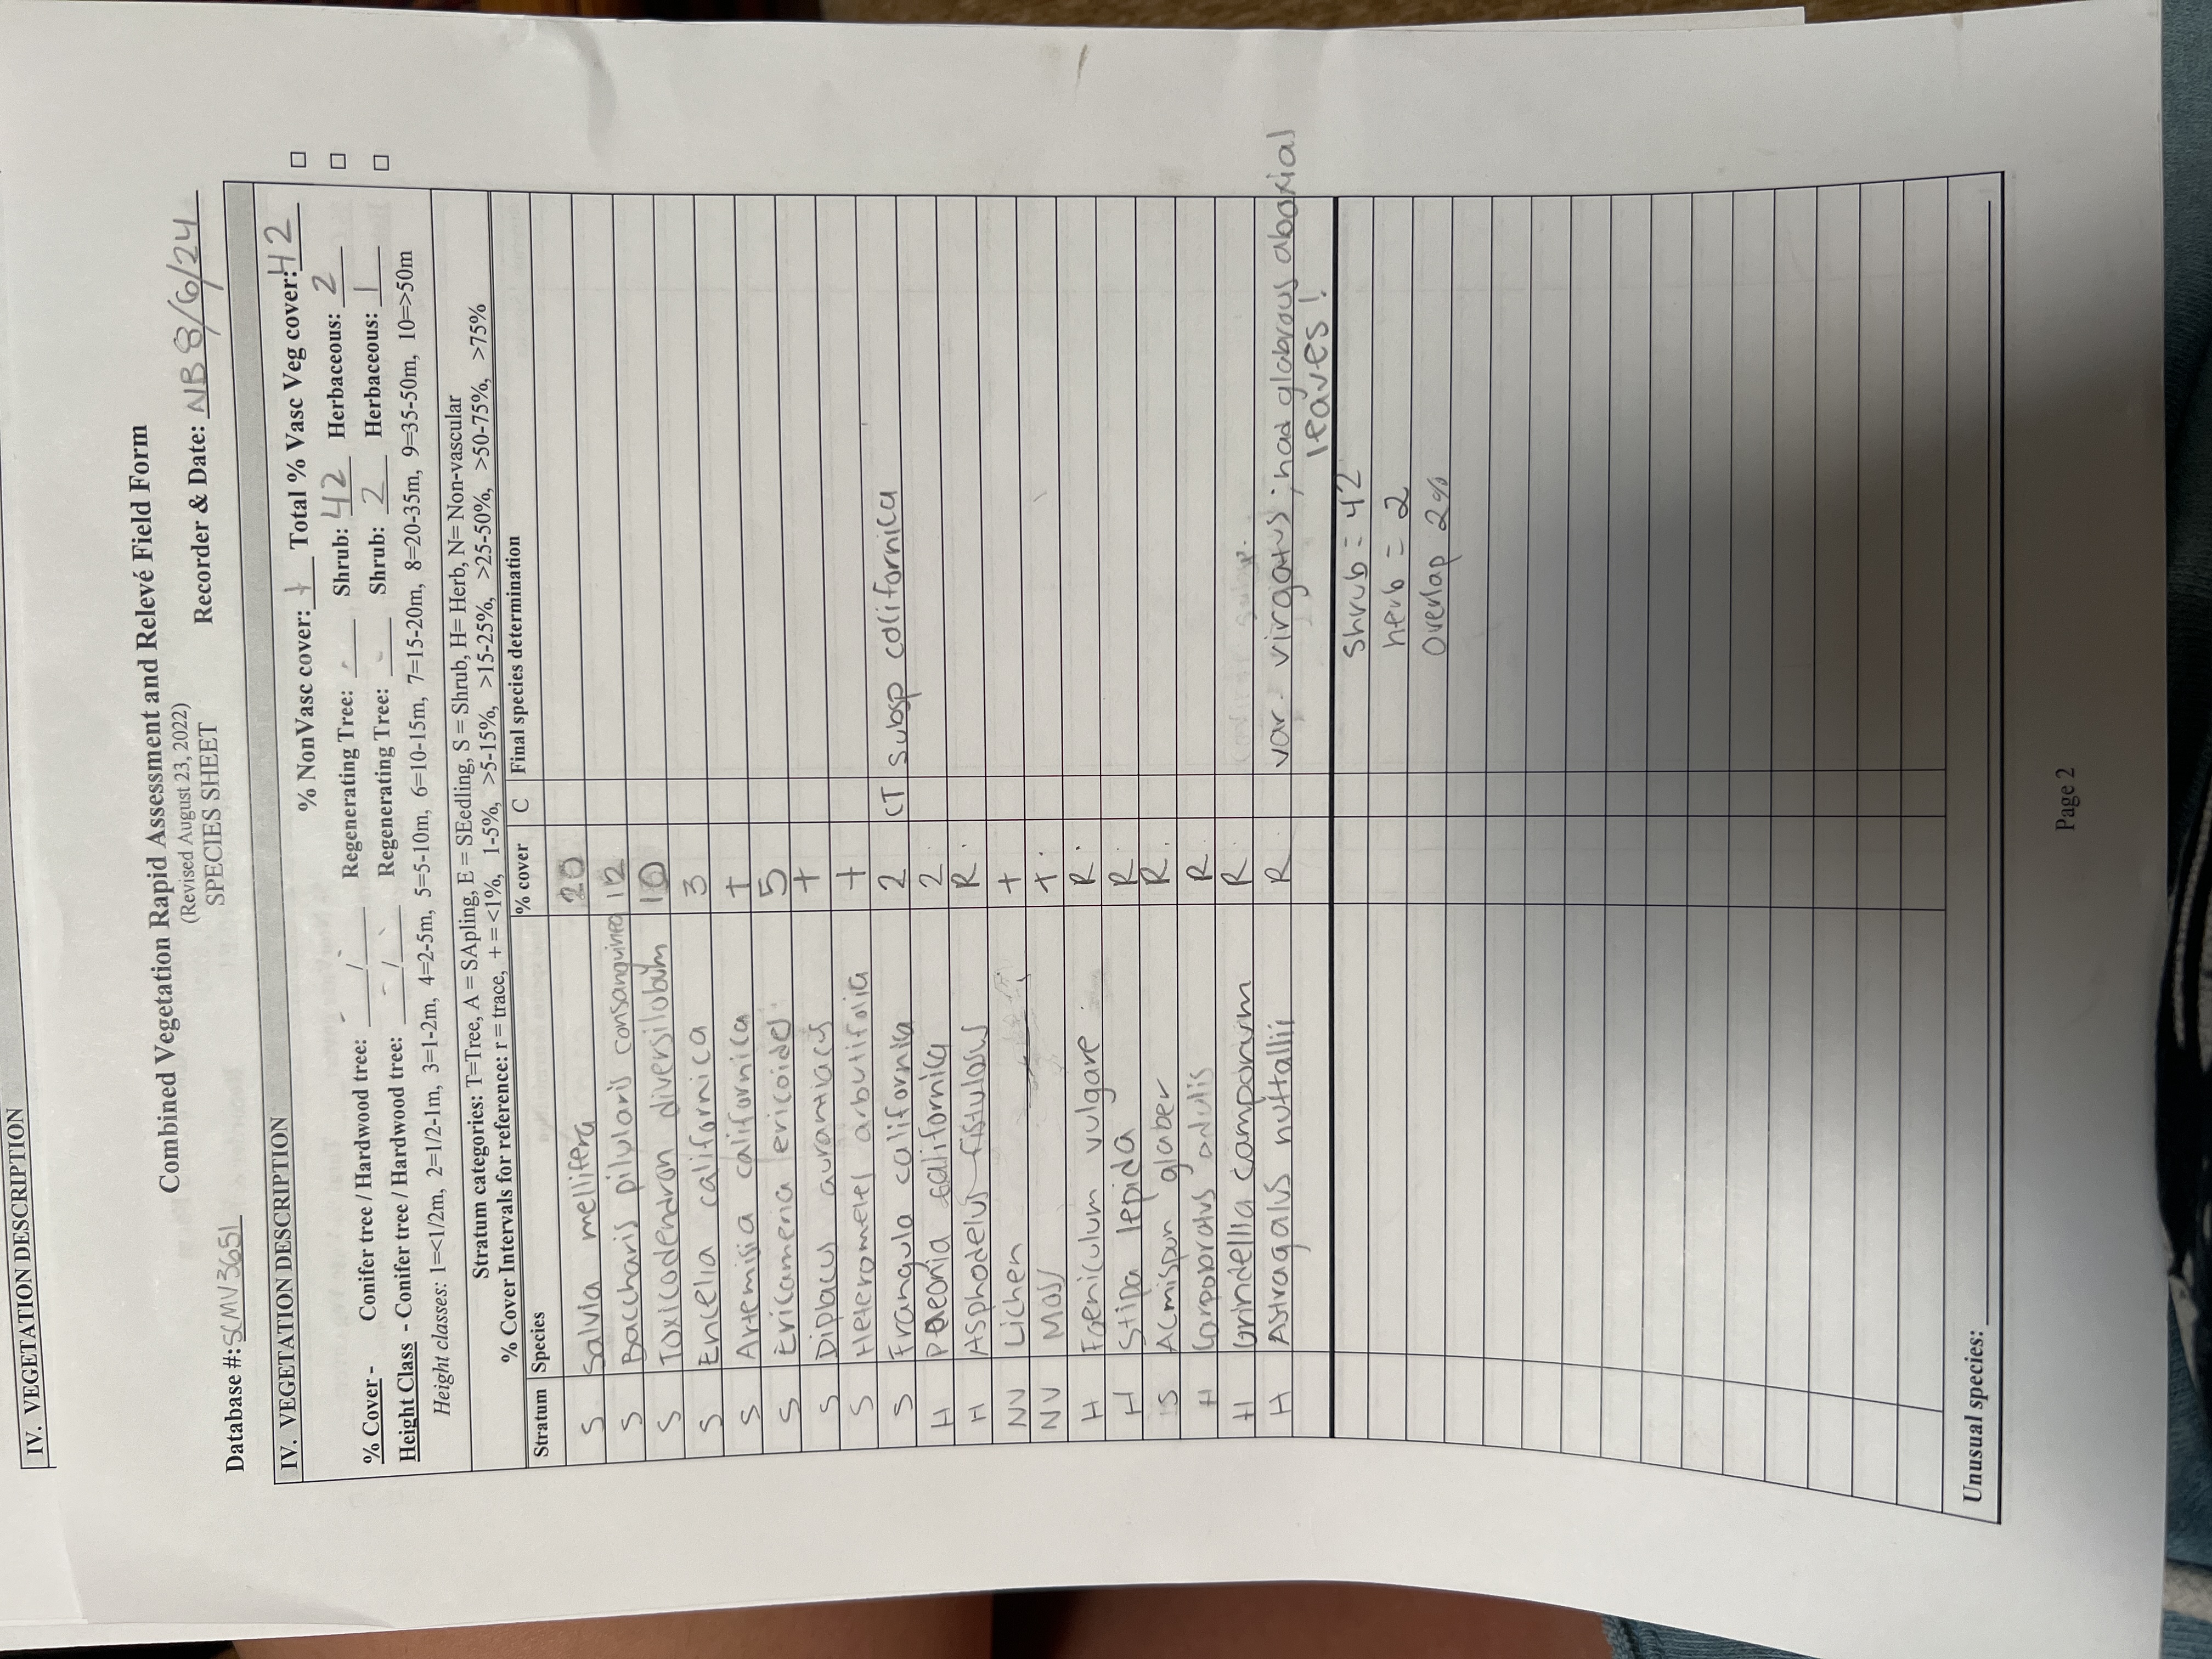 IV. VEGETATION DESCRIPTION
Combined Vegetation Rapid Assessment and Relevé Field Form
(Revised August 23, 2022)
SPECIES SHEET
Database #: SCMV3651 Recorder & Date: NB 8/6/24
IV. VEGETATION DESCRIPTION
% NonVasc cover: + Total % Vasc Veg cover: 42
% Cover - Conifer tree / Hardwood tree: - / - Regenerating Tree: - Shrub: 42 Herbaceous: 2
Height Class - Conifer tree / Hardwood tree: - / - Regenerating Tree: - Shrub: 2 Herbaceous: 1
Height classes: 1=<1/2m, 2=1/2-1m, 3=1-2m, 4=2-5m, 5=5-10m, 6=10-15m, 7=15-20m, 8=20-35m, 9=35-50m, 10=>50m
Stratum categories: T=Tree, A = SApling, E = SEedling, S = Shrub, H= Herb, N= Non-vascular
% Cover Intervals for reference: r = trace, + = <1%, 1-5%, >5-15%, >15-25%, >25-50%, >50-75%, >75%
Stratum Species % cover C Final species determination
S Salvia mellifera 20
S Baccharis pilularis consanguinea 12
S Toxicodendron diversilobum 10
S Encelia californica 3
S Artemisia californica +
S Ericameria ericoides 5
S Diplacus aurantiacus +
S Heteromeles arbutifolia +
S Frangula californica 2 CT subsp californica
H Paeonia californica 2
H Asphodelus fistulosus R
NV Lichen +
NV Moss +
H Foeniculum vulgare R
H Stipa lepida R
S Acmispon glaber R
H Carpobrotus edulis R
H Grindellia camporum R
H Astragalus nuttallii R var. virgatus; had glabrous aboxial
leaves!
Shrub = 42
herb = 2
overlap 2%
Unusual species:
Page 2